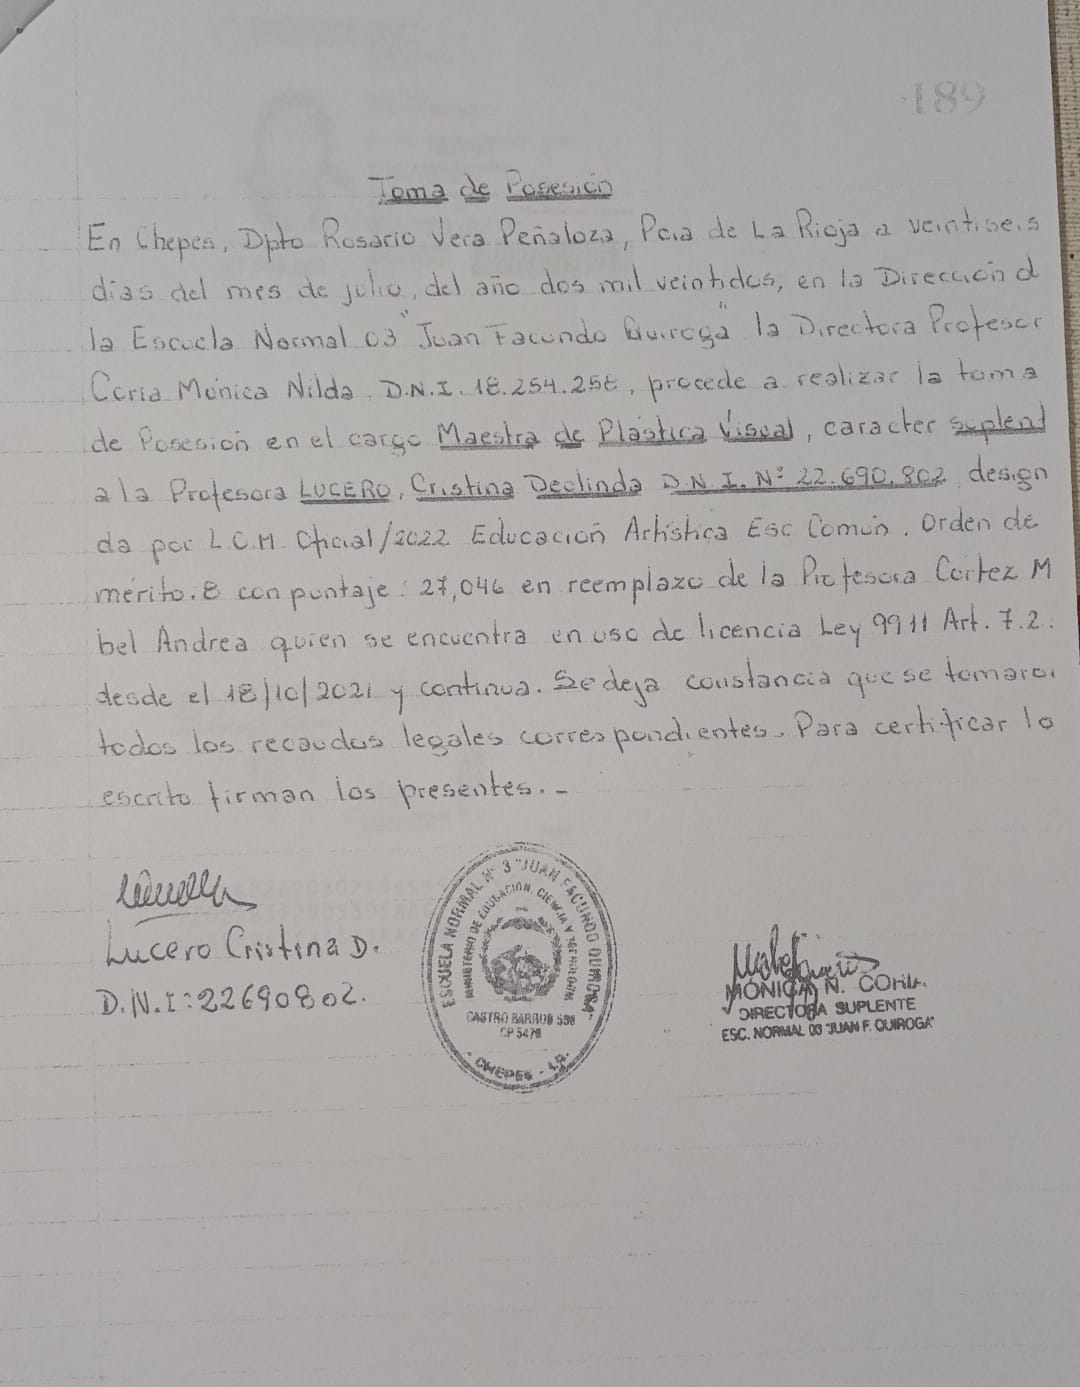 189
Toma de Posesión
En Chepes, Dpto Rosario Vera Peñaloza, Pcia de La Rioja a veintiseis
dias del mes de julio, del año dos mil veintidos, en la Dirección d
la Escuela Normal 03 "Juan Facundo Quiroga" la Directora Profesor
Coria Monica Nilda D.N.I. 18.254.258, procede a realizar la toma
de Posesión en el cargo Maestra de Plástica Visual, caracter suplent
a la Profesora LUCERO, Cristina Deolinda D.N.I. Nº 22.690.802 design
da por L.C.M. Oficial/2022 Educación Artística Esc Común. Orden de
merito. 8 con puntaje: 27,046 en reemplazo de la Profesora Cortez M
bel Andrea quien se encuentra en uso de licencia Ley 9911 Art. 7.2:
desde el 18/10/2021 y continua. Se deja constancia que se tomaron
todos los recaudos legales correspondientes. Para certificar lo
escrito firman los presentes.-
Lucero Cristina D.
D.N.I: 22690802.
ESCUELA NORMAL Nº 3 "JUAN FACUNDO QUIROGA"
MINISTERIO DE EDUCACION, CIENCIA Y TECNOLOGIA
CASTRO BARROS 558
CP 5470
CHEPES - L.R.
MÓNICA N. CORIA
DIRECTORA SUPLENTE
ESC. NORMAL 03 "JUAN F. QUIROGA"